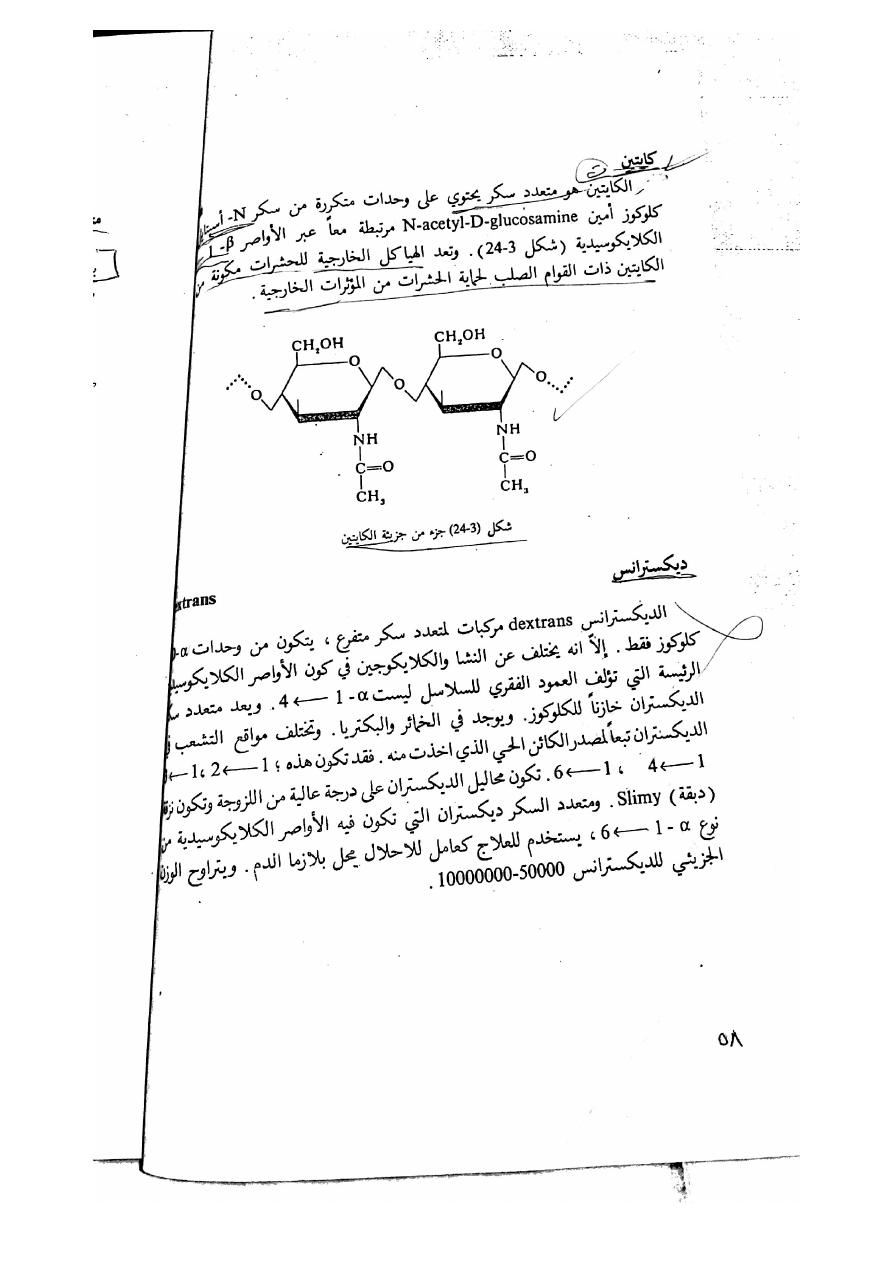 كايتين
الكايتين هو متعدد سكر يحتوي على وحدات متكررة من سكر N- أسيتايل
كلوكوز أمين N-acetyl-D-glucosamine مرتبطة معاً عبر الأواصر β-1
الكلايكوسيدية (شكل 3-24). وتعد الهياكل الخارجية للحشرات مكونة من
الكايتين ذات القوام الصلب لحماية الحشرات من المؤثرات الخارجية .
CH₂OH CH₂OH
O O
O O O
NH NH
C=O C=O
CH₃ CH₃
شكل (3-24) جزء من جزيئة الكايتين
ديكسترانس
xtrans
الديكسترانس dextrans مركبات لمتعدد سكر متفرع ، يتكون من وحدات
كلوكوز فقط . إلاّ انه يختلف عن النشا والكلايكوجين في كون الأواصر
الرئيسة التي تؤلف العمود الفقري للسلاسل ليست α-1 ← 4 . ويعد متعدد
الديكستران خازناً للكلوكوز. ويوجد في الخمائر والبكتريا. وتختلف مواقع التشعب
الديكستران تبعاً لمصدر الكائن الحي الذي اخذت منه . فقد تكون هذه ؛ 1 ← 2 ، 1 ←
1 ← 4 ، 1 ← 6 . تكون محاليل الديكستران على درجة عالية من اللزوجة وتكون
(دبقة) Slimy . ومتعدد السكر ديكستران التي تكون فيه الأواصر الكلايكوسيدية من
نوع α - 1 ← 6 ، يستخدم للعلاج كعامل للاحلال محل بلازما الدم . ويتراوح الوزن
الجزيئي للديكسترانس 50000-10000000 .
٥٨